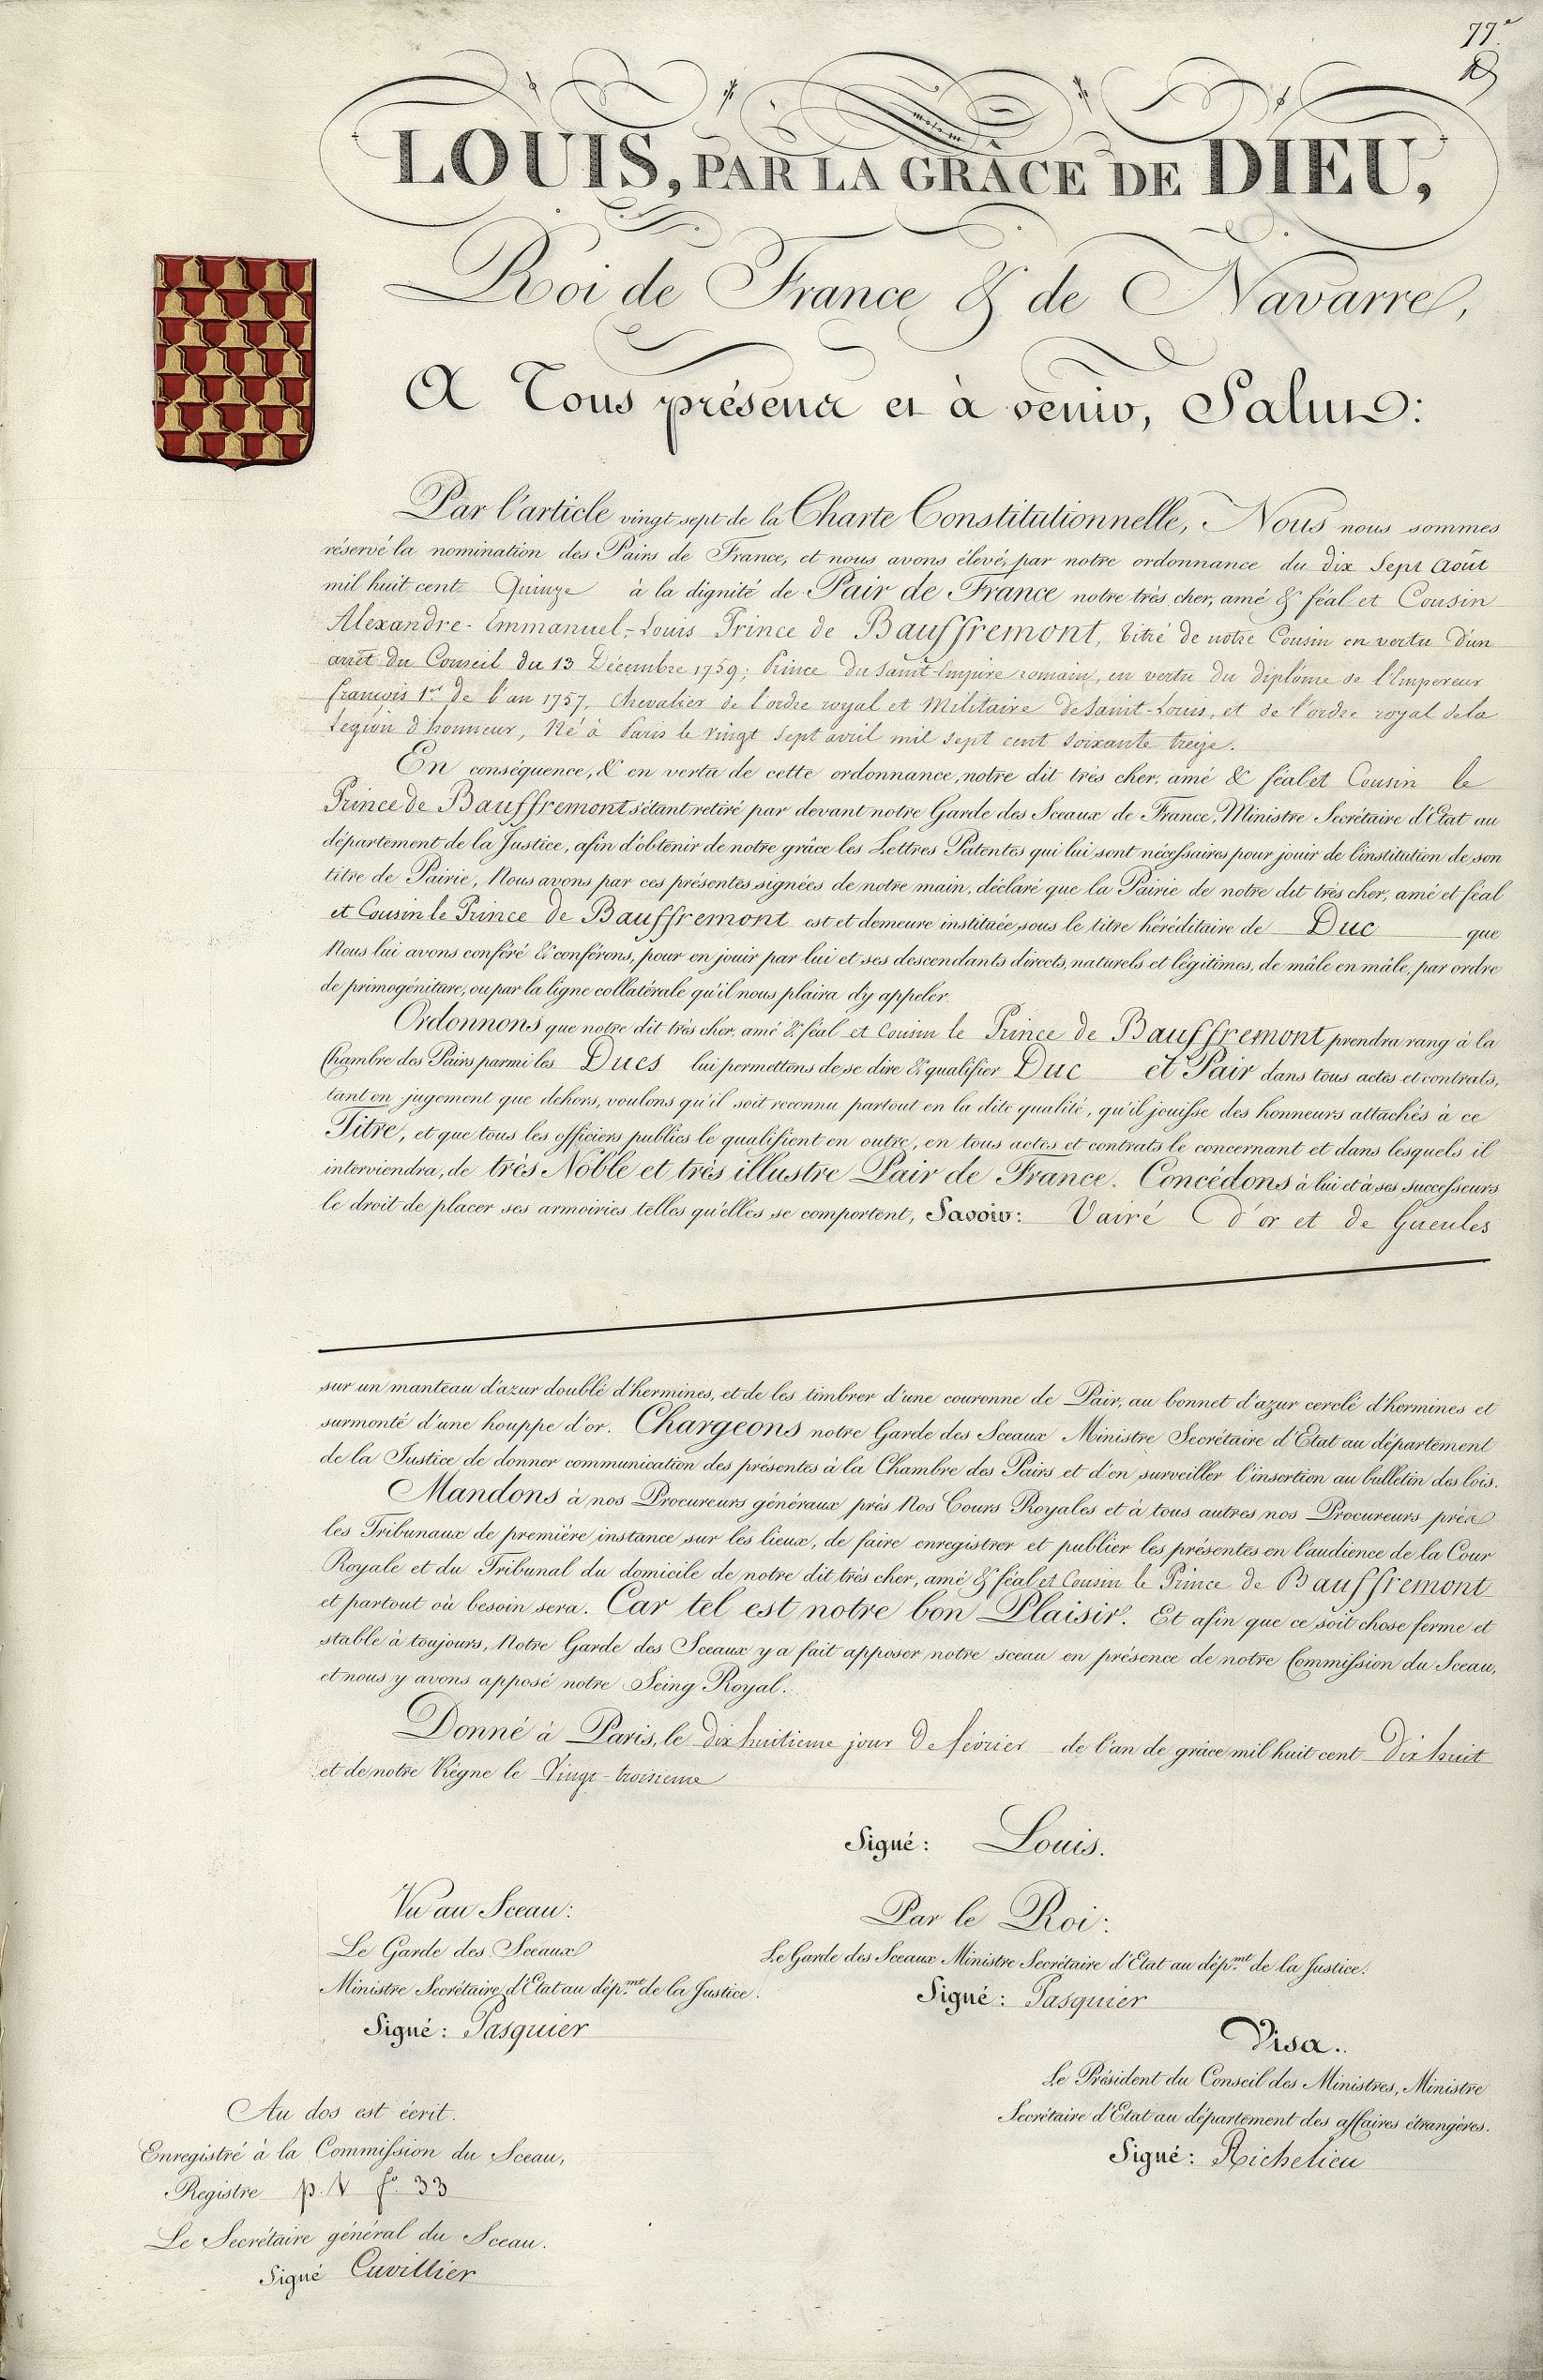 77.e
LOUIS, PAR LA GRÂCE DE DIEU,
Roi de France & de Navarre,
A Tous présens et à venir, Salut:
Par l'article vingt sept de la Charte Constitutionnelle, Nous nous sommes
réservé la nomination des Pairs de France, et nous avons élevé, par notre ordonnance du dix Sept Août
mil huit cent Quinze à la dignité de Pair de France notre très cher, amé & féal et Cousin
Alexandre-Emmanuel-Louis Prince de Bauffremont, titré de notre Cousin en vertu d'un
arrêt du Conseil du 13 Décembre 1759; Prince du Saint-Empire romain, en vertu du diplôme de l'Empereur
françois 1er de l'an 1757, Chevalier de l'ordre royal et Militaire de Saint-Louis, et de l'ordre royal de la
Légion d'honneur, Né à Paris le vingt Sept avril mil sept cent soixante treize.
En conséquence, & en vertu de cette ordonnance, notre dit très cher, amé & féal et Cousin le
Prince de Bauffremont s'étant retiré par devant notre Garde des Sceaux de France, Ministre Secrétaire d'Etat au
département de la Justice, afin d'obtenir de notre grâce les Lettres Patentes qui lui sont nécessaires pour jouir de l'institution de son
titre de Pairie, Nous avons par ces présentes signées de notre main, déclaré que la Pairie de notre dit très cher, amé et féal
et Cousin le Prince de Bauffremont est et demeure instituée sous le titre héréditaire de Duc que
Nous lui avons conféré & conférons, pour en jouir par lui et ses descendants directs, naturels et légitimes, de mâle en mâle, par ordre
de primogéniture, ou par la ligne collatérale qu'il nous plaira d'y appeler.
Ordonnons que notre dit très cher, amé & féal et Cousin le Prince de Bauffremont prendra rang à la
Chambre des Pairs parmi les Ducs lui permettons de se dire & qualifier Duc et Pair dans tous actes et contrats,
tant en jugement que dehors, voulons qu'il soit reconnu partout en la dite qualité, qu'il jouisse des honneurs attachés à ce
Titre, et que tous les officiers publics le qualifient en outre, en tous actes et contrats le concernant et dans lesquels il
interviendra, de très Noble et très illustre Pair de France. Concédons à lui et à ses successeurs
le droit de placer ses armoiries telles qu'elles se comportent, Savoir: Vairé d'or et de Gueules
sur un manteau d'azur doublé d'hermines, et de les timbrer d'une couronne de Pair, au bonnet d'azur cerclé d'hermines et
surmonté d'une houppe d'or. Chargeons notre Garde des Sceaux Ministre Secrétaire d'Etat au département
de la Justice de donner communication des présentes à la Chambre des Pairs et d'en surveiller l'insertion au bulletin des lois.
Mandons à nos Procureurs généraux près Nos Cours Royales et à tous autres nos Procureurs près
les Tribunaux de première instance sur les lieux, de faire enregistrer et publier les présentes en l'audience de la Cour
Royale et du Tribunal du domicile de notre dit très cher, amé & féal et Cousin le Prince de Bauffremont
et partout où besoin sera. Car tel est notre bon Plaisir. Et afin que ce soit chose ferme et
stable à toujours, Notre Garde des Sceaux y a fait apposer notre sceau en présence de notre Commission du Sceau,
et nous y avons apposé notre Seing Royal.
Donné à Paris, le dix huitieme jour de février de l'an de grâce mil huit cent Dix huit
et de notre Règne le Vingt-troisieme
Signé: Louis.
Vu au Sceau:
Le Garde des Sceaux
Ministre Secrétaire d'Etat au dép.mt de la Justice.
Signé: Pasquier
Par le Roi:
Le Garde des Sceaux Ministre Secrétaire d'Etat au dép.mt de la Justice.
Signé: Pasquier
Visa.
Le Président du Conseil des Ministres, Ministre
Secrétaire d'Etat au département des affaires étrangères.
Signé: Richelieu
Au dos est écrit.
Enregistré à la Commission du Sceau,
Registre p. V fo. 33
Le Secrétaire général du Sceau.
Signé Cuvillier